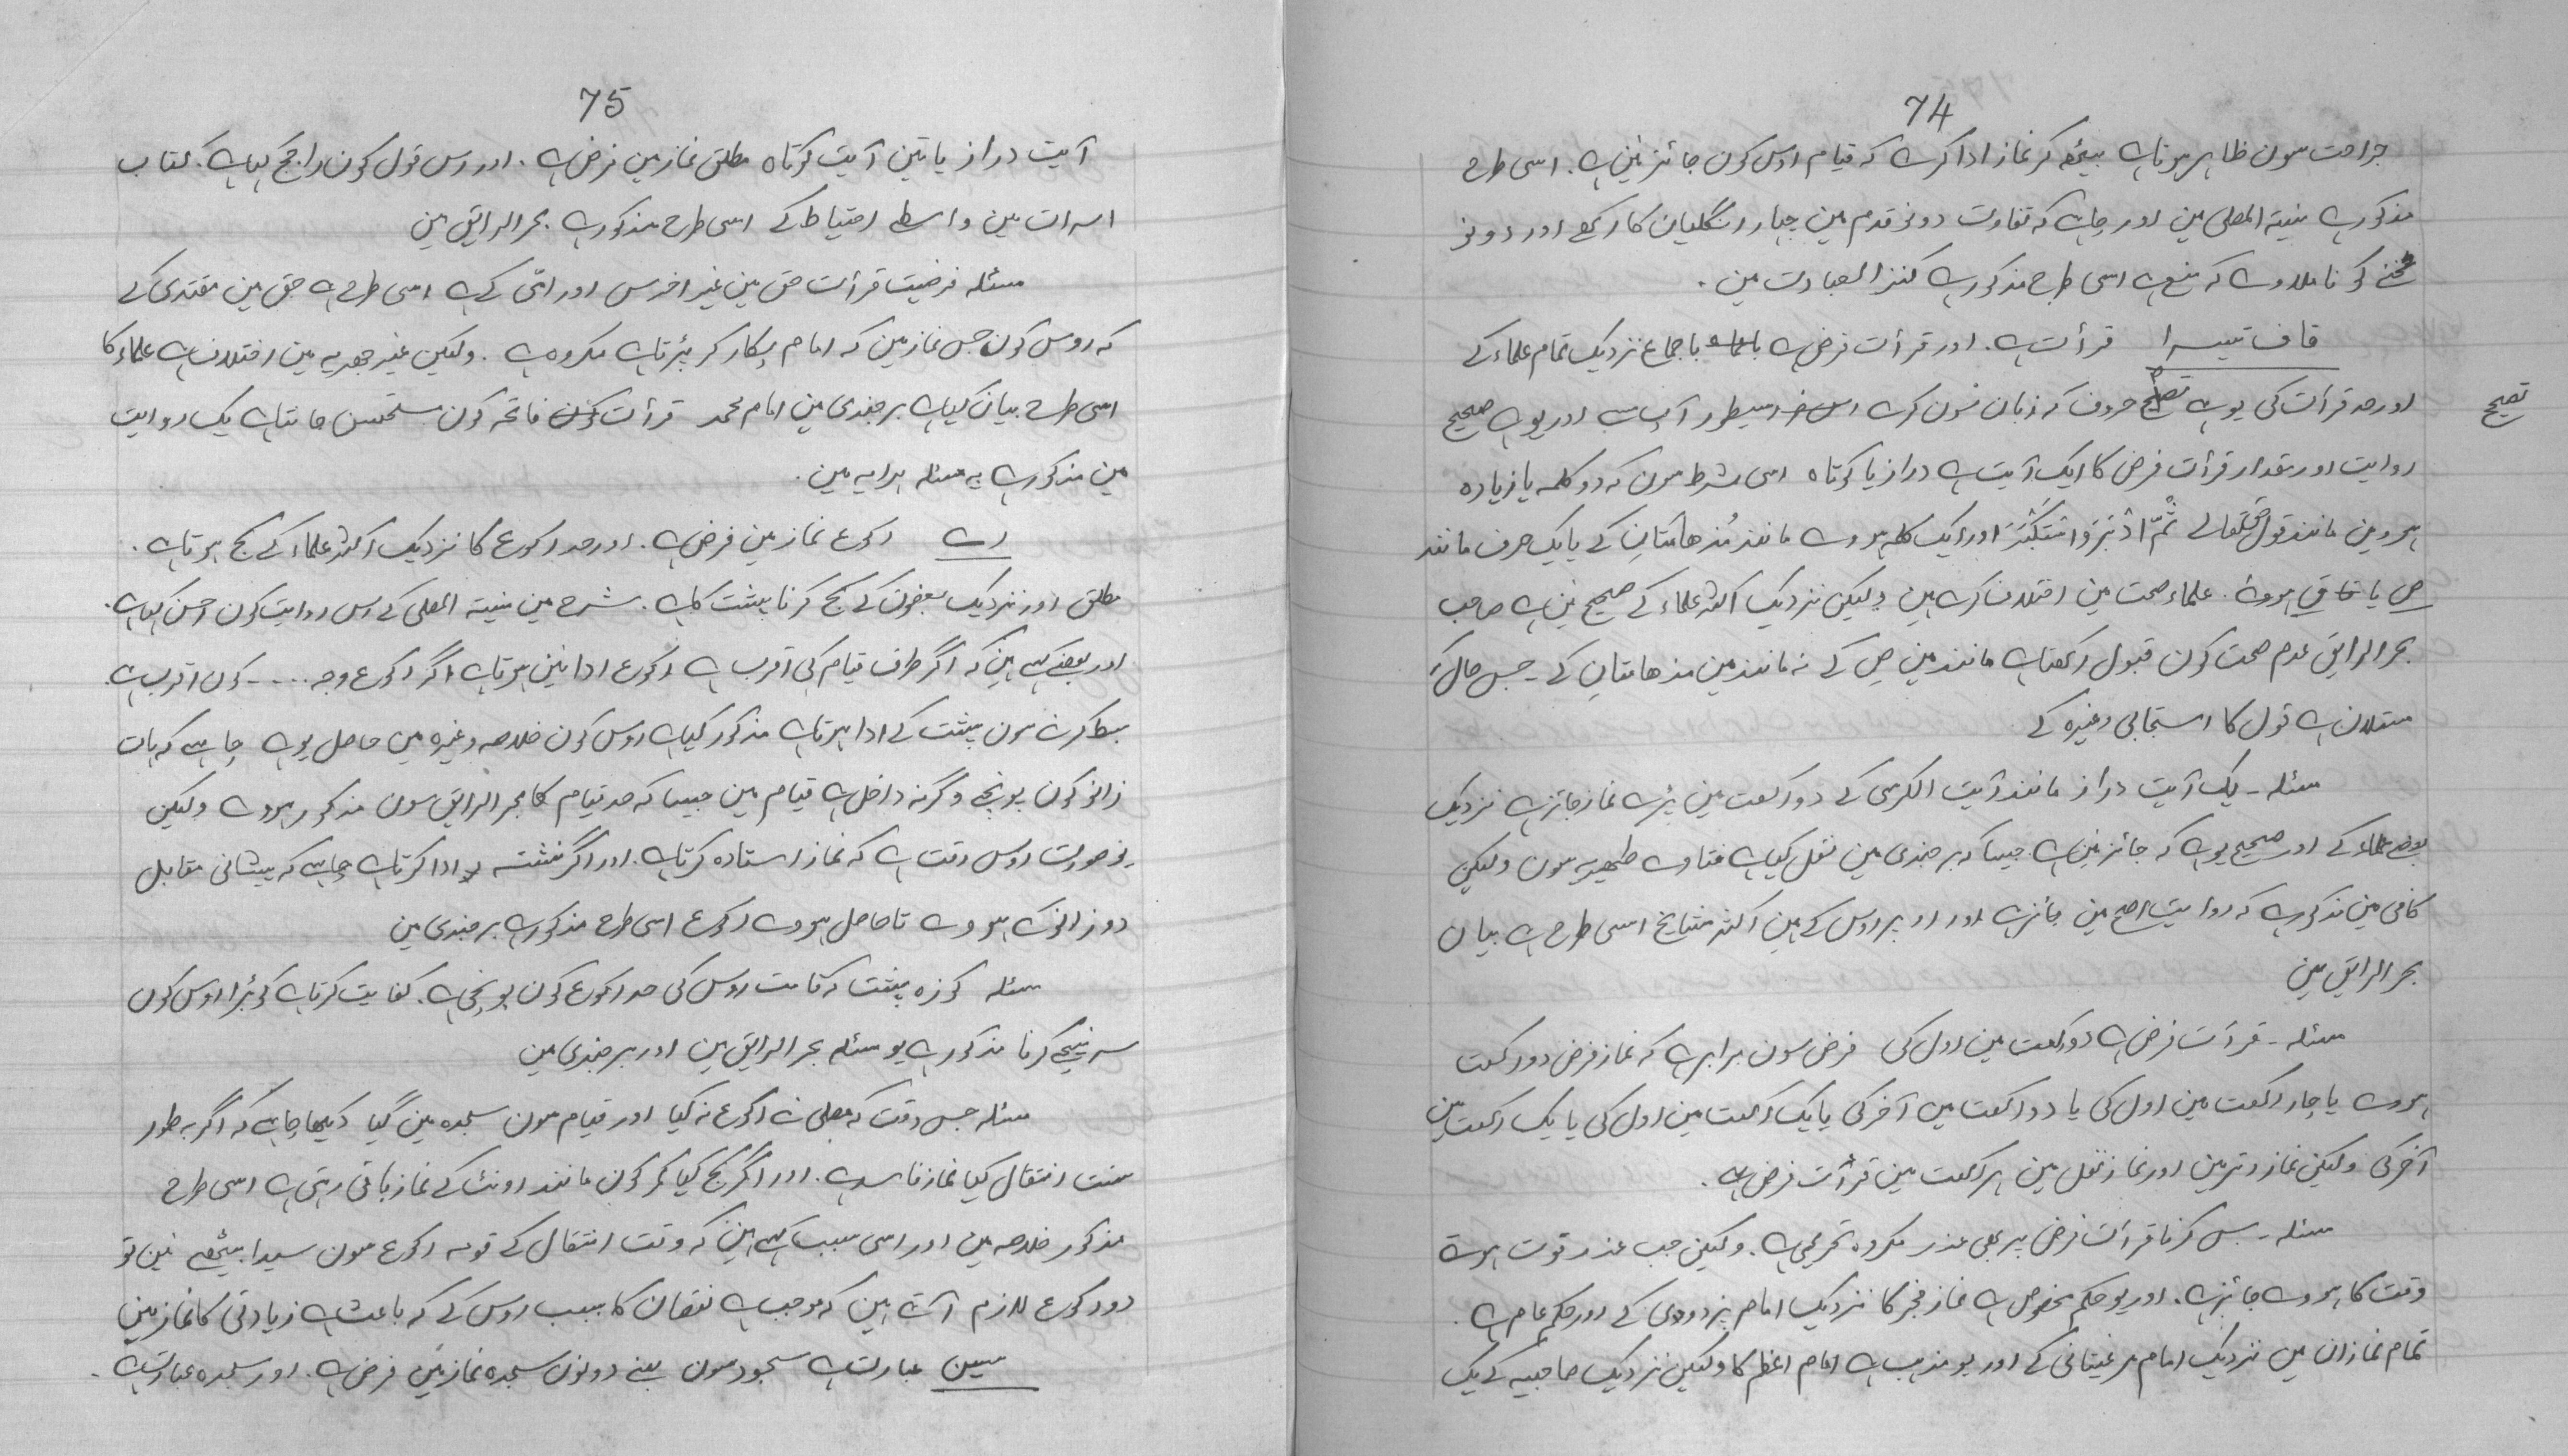 74
جراحت سون ظاہر ہوتا ہے بیٹھ کر نماز ادا کرے کہ قیام اوس کون جائز نین ہے۔ اسی طرح
مذکور ہے منیۃ المصلی مین اور چاہے کہ تفاوت دونو قدم مین چہار انگلیان کا رکھے اور دونو
ٹخنے کو نا ملاوے کہ منع ہے اسی طرح مذکور ہے کنز العبادت مین۔
قاف تیسرا قرأت ہے۔ اور قرأت فرض ہے باجماع نزدیک تمام علماء کے
تصحیح
اور حد قرأت کی یو ہے تصحیح حروف کہ زبان سون کرے اسیطور آپ سے اور یو ہے صحیح
روایت اور مقدار قرأت فرض کا ایک آیت ہے دراز یا کوتاہ اسی شرط سون کہ دو کلمہ یا زیادہ
ہووین مانند قول حقتعالے ثُمَّ اَدْبَرَ وَاسْتَكْبَرَ اور ایک کلمہ ہووے مانند مُدْهَامَّتَانِ کے یا یک حرف مانند
ص یا ق ہووے۔ علماء صحت مین اختلاف کرے ہین ولیکن نزدیک اکثر علماء کے صحیح نین ہے صاحب
بحر الرایق عدم صحت کون قبول رکھتا ہے مانند مین ص کے نہ مانند مین مدھامتان کے۔ جس حال کہ
قول کا اسبیجابی وغیرہ کے
مسئلہ۔ یک آیت دراز مانند آیت الکرسی کے دو رکعت مین پڑے نماز جائز ہے نزدیک
بعض علماء کے اور صحیح یو ہے کہ جائز نین ہے جیسا کہ برجندی مین نقل کیا ہے فتاوے ظہیریہ سون ولیکن
کافی مین مذکور ہے کہ روایت اصح مین جائز ہے اور اوپر اوس کے ہین اکثر مشایخ اسی طرح ہے بیان
بحر الرایق مین
مسئلہ۔ قرأت فرض ہے دو رکعت مین اول کی فرض سون برابر ہے کہ نماز فرض دو رکعت
ہووے یا چار رکعت مین اول کی یا دو رکعت مین آخر کی یا یک رکعت مین اول کی یا یک رکعت مین
آخر کی ولیکن نماز وتر مین اور نماز نفل مین ہر رکعت مین قرأت فرض ہے۔
مسئلہ۔ بس کرنا قرأت فرض پر بی عذر مکروہ تحریمی ہے۔ ولیکن جب عذر فوت ہونے
وقت کا ہووے جائز ہے۔ اور یو حکم مخصوص ہے نماز فجر کا نزدیک امام بزدوی کے اور حکم عام ہے
تمام نمازان مین نزدیک امام مرغینانی کے اور یو مذہب ہے امام اعظم کا ولیکن نزدیک صاحبیہ کے یک
75
آیت دراز یا تین آیت کوتاہ مطلق نماز مین فرض ہے۔ اور اس قول کون راجح کہا ہے۔ کتاب
اسرات مین واسطے احتیاط کے اسی طرح مذکور ہے بحر الرایق مین
مسئلہ فرضیت قرأت حق مین غیر اخرس اور امّی کے ہے اسی طرح ہے حق مین مقتدی کے
کہ اوس کون جس نماز مین کہ امام پکار کر پڑتا ہے مکروہ ہے۔ ولیکن غیر جہریہ مین اختلاف ہے علماء کا
اسی طرح بیان کیا ہے برجندی مین امام محمد قرأت فاتحہ کون مستحسن جانتا ہے یک روایت
مین مذکور ہے یہ مسئلہ ہدایہ مین۔
رے رکوع نماز مین فرض ہے۔ اور حد رکوع کا نزدیک اکثر علماء کے کج ہوتا ہے۔
مطلق اور نزدیک بعضون کے کج کرنا پشت کا ہے۔ شرح مین منیۃ المصلی کے اس روایت کون احسن کہا ہے۔
اور بعضے کہے ہین کہ اگر طرف قیام کی اقرب ہے رکوع ادا نین ہوتا ہے اگر رکوع وجہ .... کون اقرب ہے
کرنے سون پشت کے ادا ہوتا ہے مذکور کیا ہے اوس کون خلاصہ وغیرہ مین حاصل یو ہے چاہے کہ ہات
زانو کون پونچے وگرنہ داخل ہے قیام مین جیسا کہ حد قیام کا بحر الرایق سون مذکور ہووے ولیکن
یو صورت اوس وقت ہے کہ نماز استادہ کرتا ہے۔ اور اگر نشستہ ادا کرتا ہے چاہے کہ پیشانی مقابل
دو زانو کے ہووے تا حاصل ہووے رکوع اسی طرح مذکور ہے برجندی مین
مسئلہ کوزہ پشت کہ قامت اوس کی حد رکوع کون پونچی ہے۔ کفایت کرتا ہے کوبڑا اوس کون
سر نیچے کرنا مذکور ہے یو مسئلہ بحر الرایق مین اور برجندی مین
مسئلہ جس وقت کہ مصلی نے رکوع نہ کیا اور قیام سون سجدہ مین گیا دیکھا چاہے کہ اگر بہ طور
سنت انتقال کیا نماز فاسد ہے۔ اور اگر کج کیا کمر کون مانند اونٹ کے نماز باقی رہتی ہے اسی طرح
مذکور خلاصہ مین اور اسی سبب کہے ہین کہ وقت انتقال کے قومہ رکوع سون سیدا بیٹھے نین تو
دو رکوع لازم آتے ہین کہ موجب ہے نقصان کا بسبب اوس کے کہ باعث ہے زیادتی کا نماز مین
سین عبارت ہے سجود سون یعنے دونون سجدہ نماز مین فرض ہے۔ اور سجدہ عبارت ہے۔